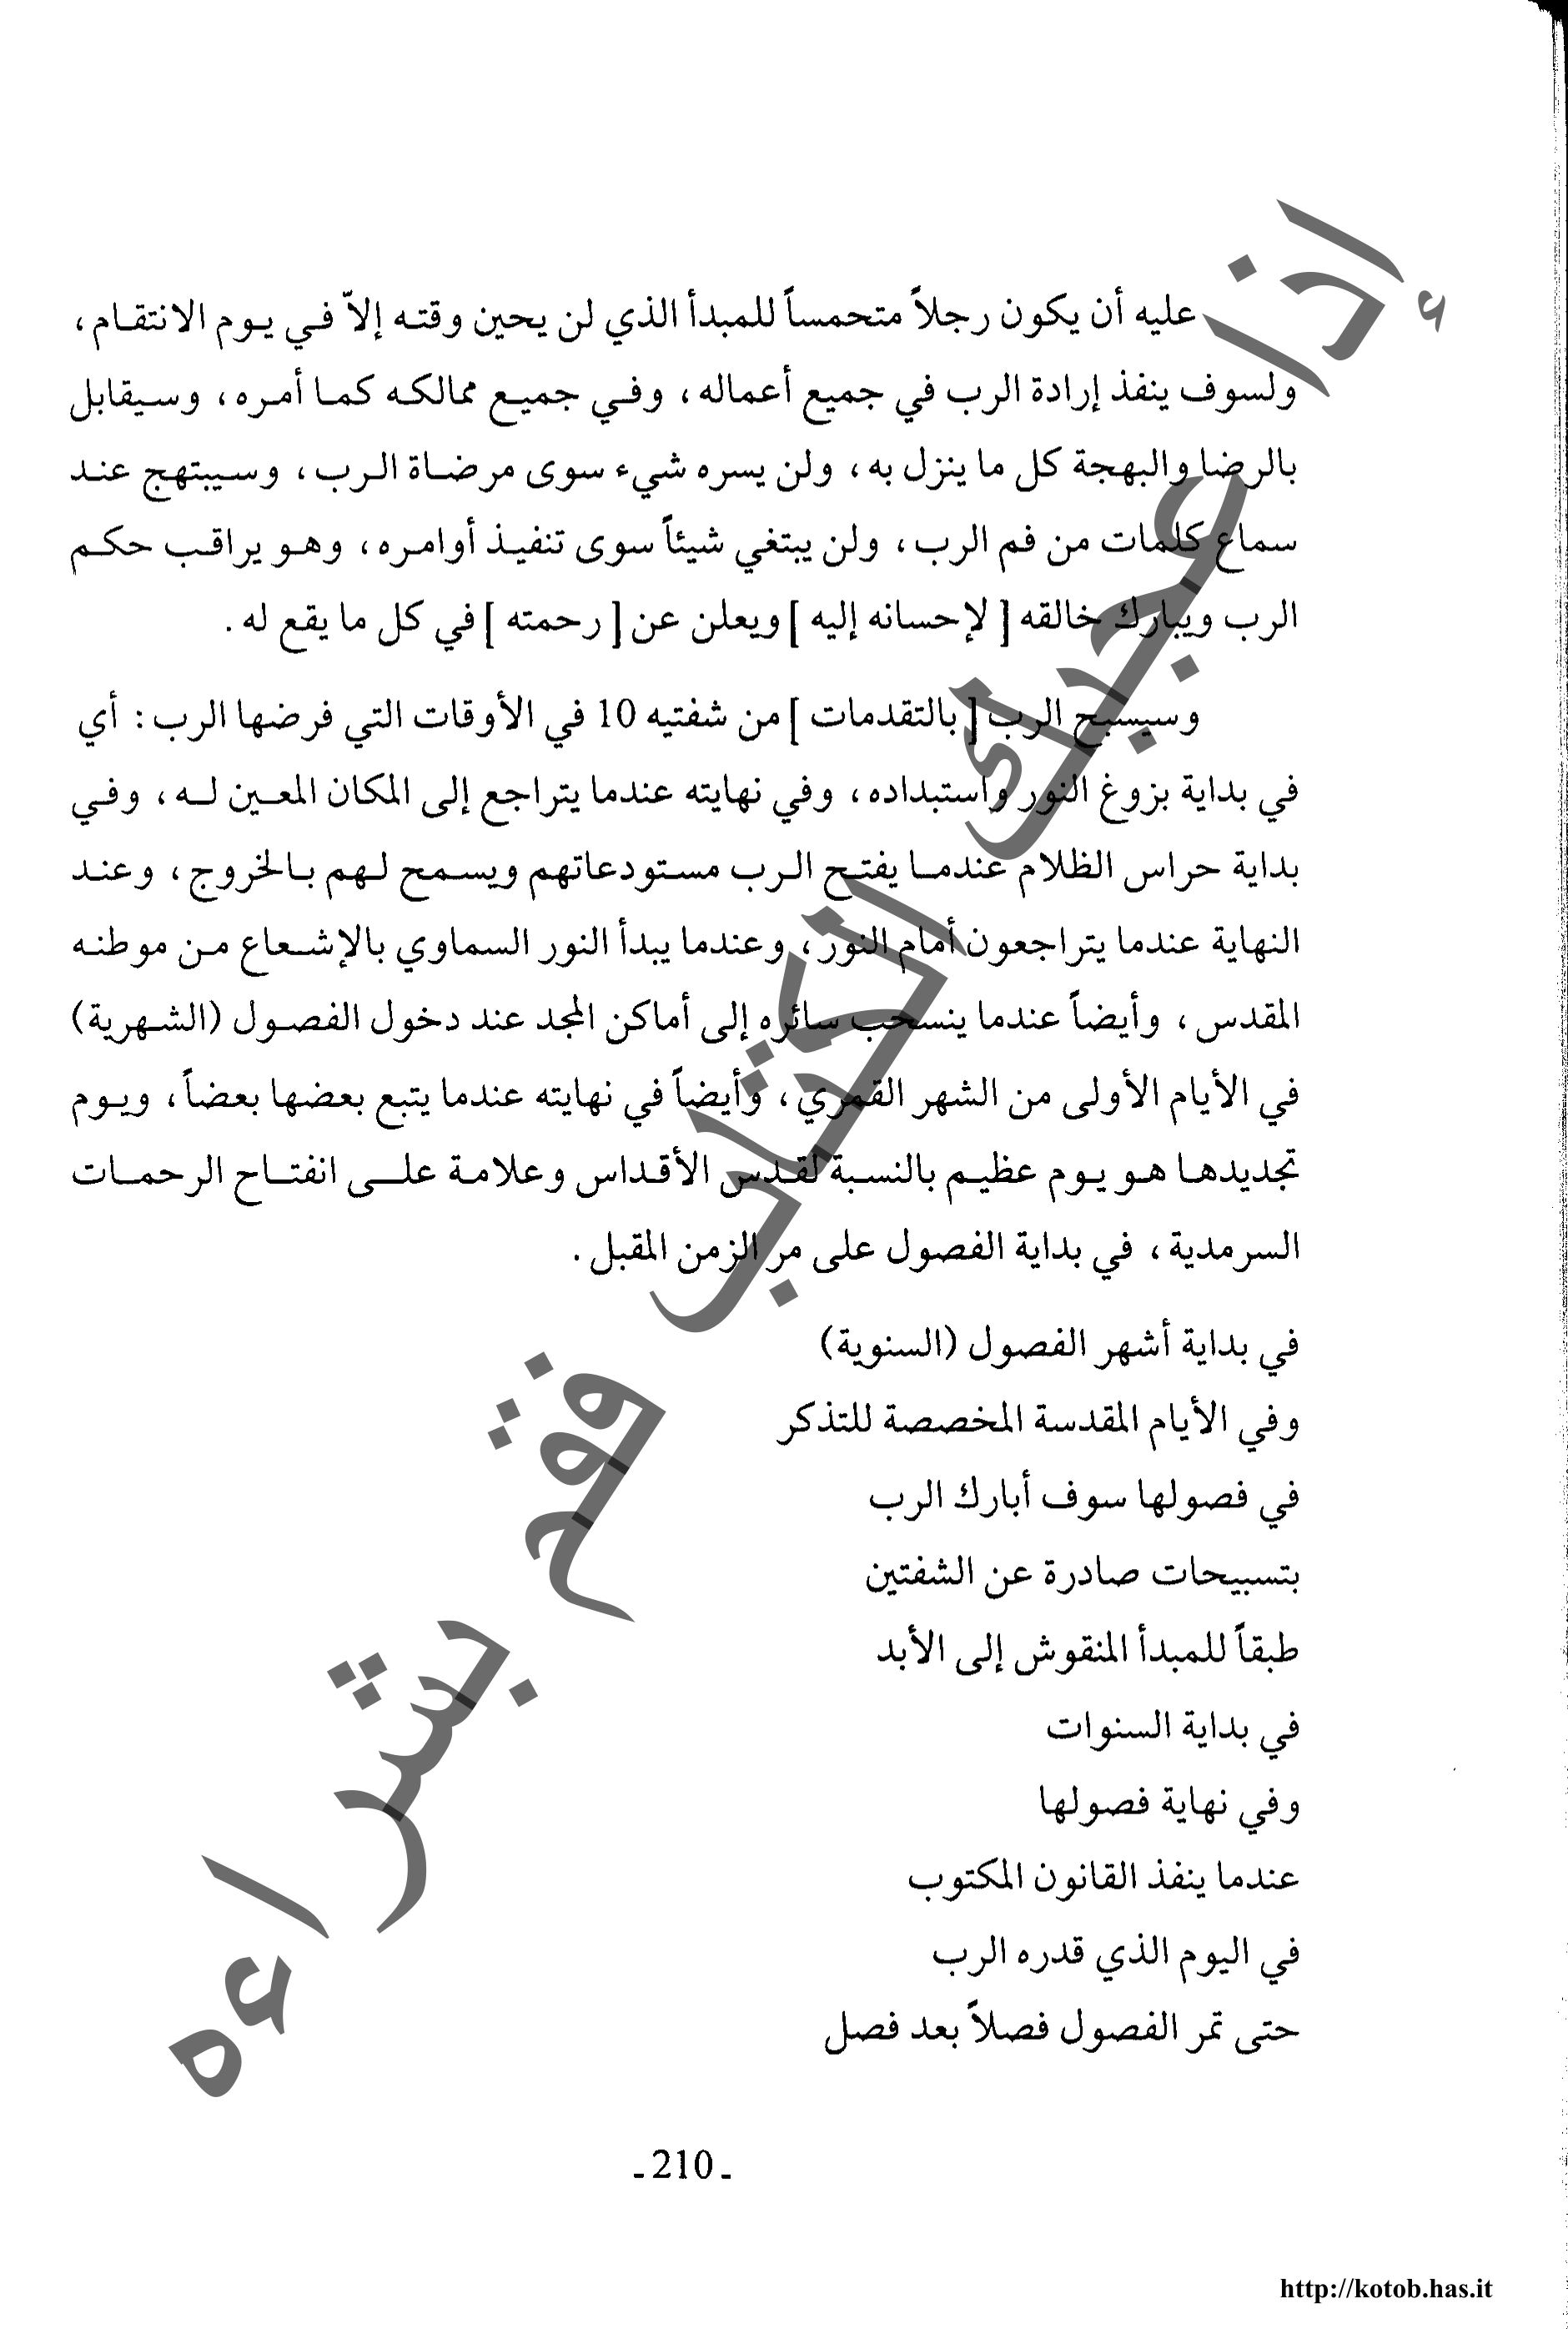 عليه أن يكون رجلاً متحمساً للمبدأ الذي لن يحين وقته إلاّ في يوم الانتقام،
ولسوف ينفذ إرادة الرب في جميع أعماله، وفي جميع ممالكه كما أمره، وسيقابل
بالرضا والبهجة كل ما ينزل به، ولن يسره شيء سوى مرضاة الرب، وسيبتهج عند
سماع كلمات من فم الرب، ولن يبتغي شيئاً سوى تنفيذ أوامره، وهو يراقب حكم
الرب ويبارك خالقه [ لإحسانه إليه ] ويعلن عن [ رحمته ] في كل ما يقع له .
وسيسبح الرب [ بالتقدمات ] من شفتيه 10 في الأوقات التي فرضها الرب : أي
في بداية بزوغ النور واستبداده، وفي نهايته عندما يتراجع إلى المكان المعين له، وفي
بداية حراس الظلام عندما يفتح الرب مستودعاتهم ويسمح لهم بالخروج، وعند
النهاية عندما يتراجعون أمام النور، وعندما يبدأ النور السماوي بالإشعاع من موطنه
المقدس، وأيضاً عندما ينسحب سائره إلى أماكن المجد عند دخول الفصول (الشهرية)
في الأيام الأولى من الشهر القمري، وأيضاً في نهايته عندما يتبع بعضها بعضاً، ويوم
تجديدها هو يوم عظيم بالنسبة لقدس الأقداس وعلامة على انفتاح الرحمات
السرمدية، في بداية الفصول على مر الزمن المقبل .
في بداية أشهر الفصول (السنوية)
وفي الأيام المقدسة المخصصة للتذكر
في فصولها سوف أبارك الرب
بتسبيحات صادرة عن الشفتين
طبقاً للمبدأ المنقوش إلى الأبد
في بداية السنوات
وفي نهاية فصولها
عندما ينفذ القانون المكتوب
في اليوم الذي قدره الرب
حتى تمر الفصول فصلاً بعد فصل
إذا أعجبك الكتاب فقم بشراءه
- 210 -
http://kotob.has.it